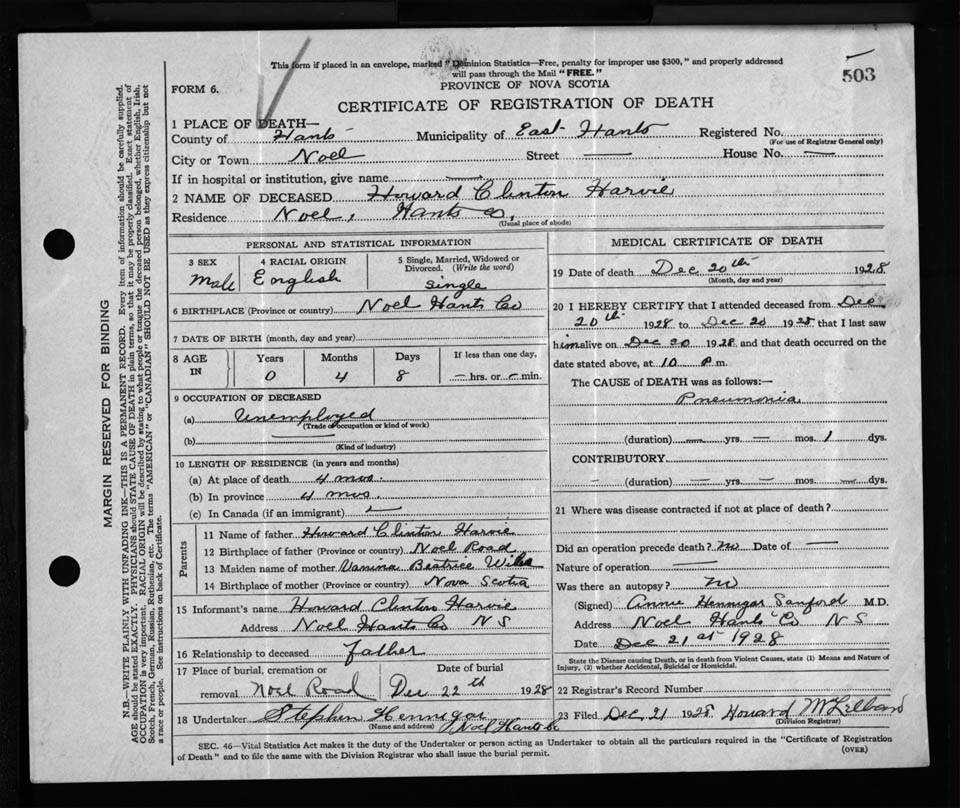 This form if placed in an envelope, marked "Dominion Statistics—Free, penalty for improper use $300," and properly addressed
will pass through the Mail "FREE."
503
FORM 6.
PROVINCE OF NOVA SCOTIA
CERTIFICATE OF REGISTRATION OF DEATH
1 PLACE OF DEATH—
County of Hants Municipality of East Hants Registered No.
(For use of Registrar General only)
City or Town Noel Street — House No. —
If in hospital or institution, give name —
2 NAME OF DECEASED Howard Clinton Harvie
Residence Noel, Hants Co,
(Usual place of abode)
PERSONAL AND STATISTICAL INFORMATION
3 SEX Male
4 RACIAL ORIGIN English
5 Single, Married, Widowed or
Divorced. (Write the word)
Single
6 BIRTHPLACE (Province or country) Noel Hants Co
7 DATE OF BIRTH (month, day and year)
8 AGE IN
Years Months Days If less than one day,
0 4 8 — hrs. or — min.
9 OCCUPATION OF DECEASED
(a) Unemployed
(Trade of occupation or kind of work)
(b) —
(Kind of industry)
10 LENGTH OF RESIDENCE (in years and months)
(a) At place of death 4 mos.
(b) In province 4 mos.
(c) In Canada (if an immigrant)
Parents
11 Name of father Howard Clinton Harvie
12 Birthplace of father (Province or country) Noel Road
13 Maiden name of mother Beatrice
14 Birthplace of mother (Province or country) Nova Scotia
15 Informant's name Howard Clinton Harvie
Address Noel Hants Co N S
16 Relationship to deceased father
17 Place of burial, cremation or
removal Noel Road
Date of burial
Dec 22th 1928
18 Undertaker Stephen Hennigar
(Name and address) Noel Hants Co
MEDICAL CERTIFICATE OF DEATH
19 Date of death Dec 20th 1928
(Month, day and year)
20 I HEREBY CERTIFY that I attended deceased from Dec
20th 1928 to Dec 20 1928 that I last saw
him alive on Dec 20 1928 and that death occurred on the
date stated above, at 10 P m.
The CAUSE of DEATH was as follows:—
Pneumonia
(duration) — yrs. — mos. 1 dys.
CONTRIBUTORY
— (duration) — yrs. — mos. — dys.
21 Where was disease contracted if not at place of death?
Did an operation precede death? no Date of —
Nature of operation —
Was there an autopsy? no
(Signed) Annie Hennigar Sanford M.D.
Address Noel Hants Co N S
Date Dec 21st 1928
State the Disease causing Death, or in death from Violent Causes, state (1) Means and Nature of
Injury, (2) whether Accidental, Suicidal or Homicidal.
22 Registrar's Record Number
23 Filed Dec 21 1928 Howard
(Division Registrar)
SEC. 46—Vital Statistics Act makes it the duty of the Undertaker or person acting as Undertaker to obtain all the particulars required in the "Certificate of Registration
of Death" and to file the same with the Division Registrar who shall issue the burial permit. (OVER)
MARGIN RESERVED FOR BINDING
N.B.—WRITE PLAINLY WITH UNFADING INK—THIS IS A PERMANENT RECORD. Every item of information should be carefully supplied.
AGE should be stated EXACTLY. PHYSICIANS should STATE CAUSE OF DEATH in plain terms, so that it may be properly classified. Exact statement of
OCCUPATION is very important. RACIAL ORIGIN will be described by stating to what people or tongue the deceased person belonged, whether English, Irish,
Scotch, French, German, Russian, Ruthenian, etc. The terms "AMERICAN" or "CANADIAN" SHOULD NOT BE USED as they express citizenship but not
a race or people. See instructions on back of Certificate.